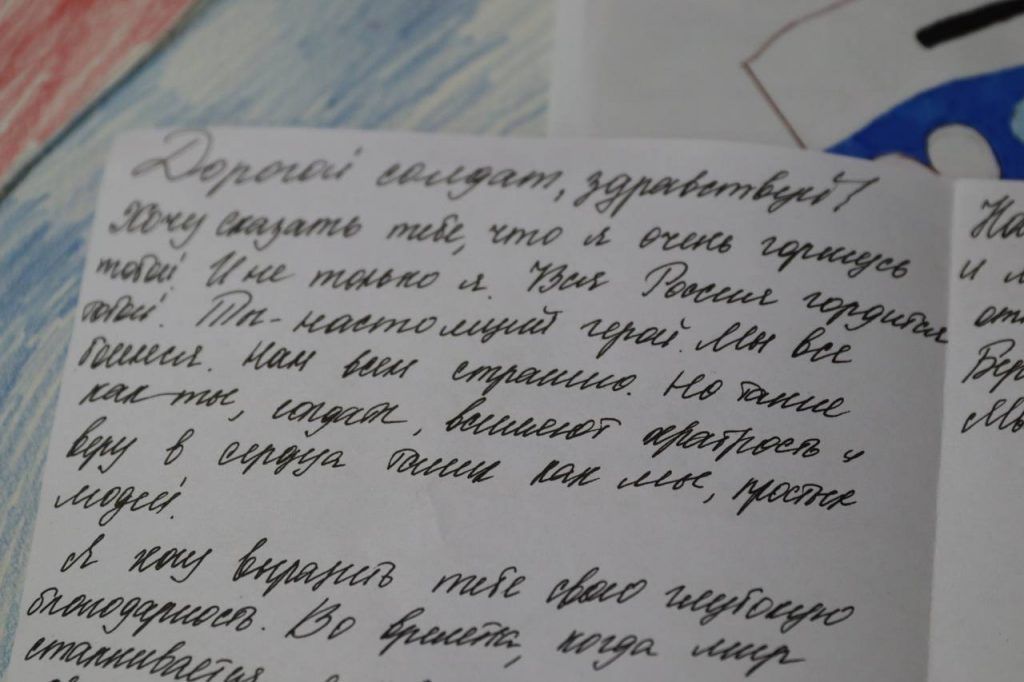 Дорогой солдат, здравствуй!
Хочу сказать тебе, что я очень горжусь
тобой! И не только я. Вся Россия гордится
тобой. Ты - настоящий герой. Мы все
боимся. Нам всем страшно. Но такие
как ты, солдат, вселяют храбрость и
веру в сердца таких как мы, простых
людей.
Я хочу выразить тебе свою глубокую
благодарность. Во времена, когда мир
сталкивается
На
и
Мы